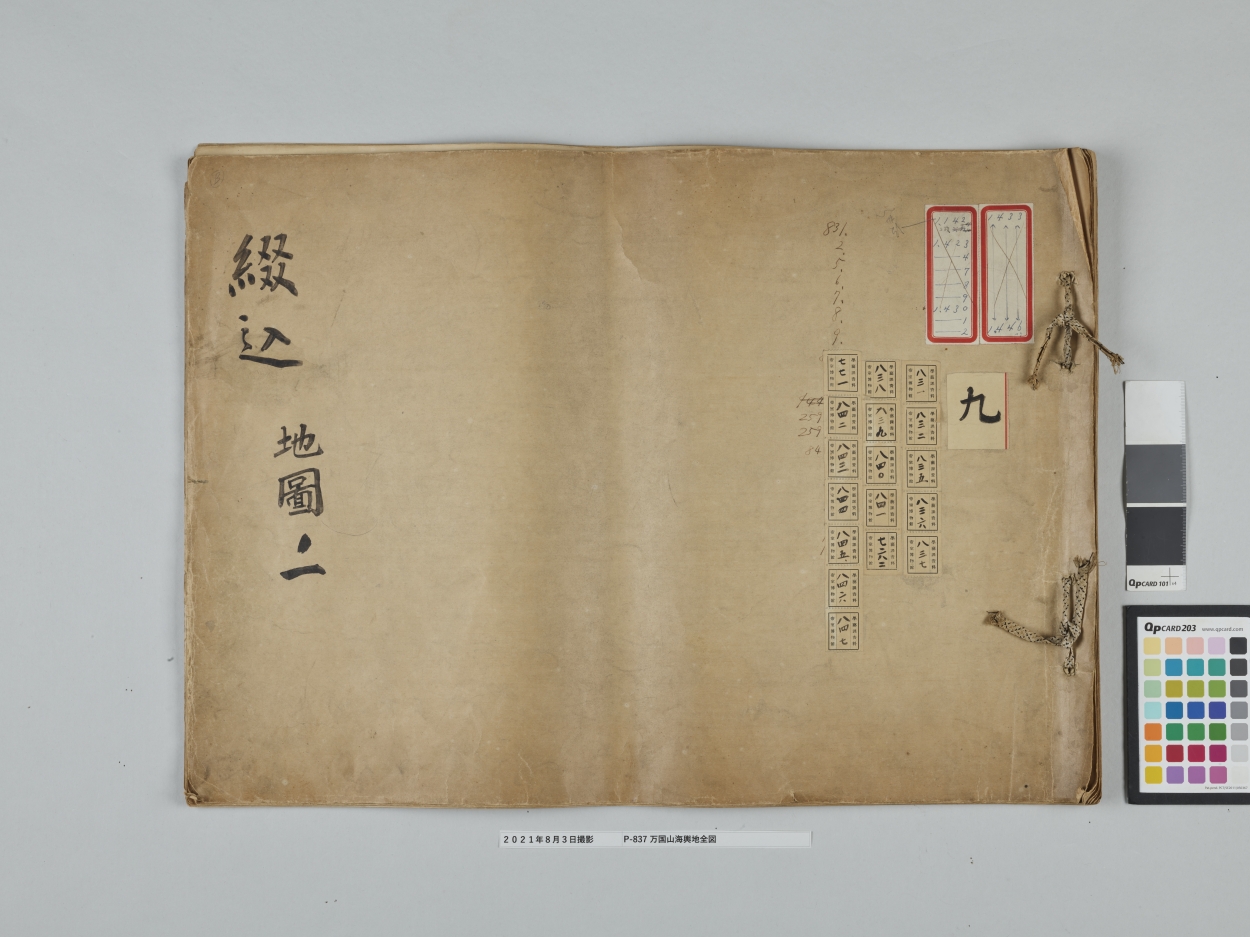 綴込
地圖二
九
1433
1.423
4
7
8
9
1.430
1
2
831.
2.
5.
6.
7.
8.
9.
八三一
八三二
八三五
八三六
八三七
八三八
八三九
八四〇
八四一
七六二
七七一
八四二
八四三
八四四
八四五
八四六
八四七
259
259
84
2021年8月3日撮影 P-837 万国山海輿地全図
QpCARD 101
QpCARD 203 www.qpcard.com